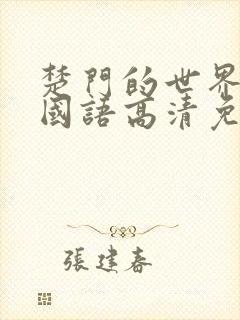 楚門的世界
國語高清免
張建春